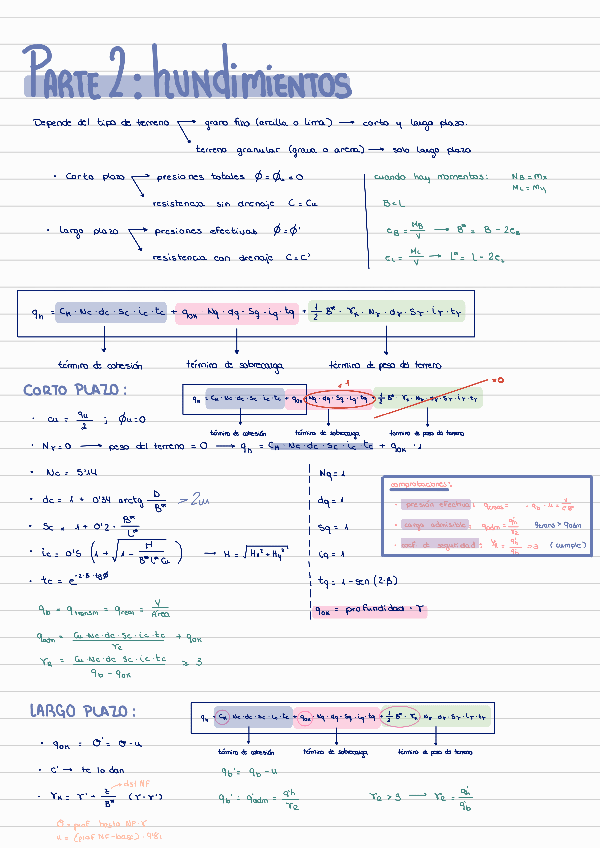 PARTE 2: hundimientos
Depende del tipo de terreno → grano fino (arcilla o limo) → corto y largo plazo.
terreno granular (grava o arena) → solo largo plazo
• Corto plazo → presiones totales Ø = Øu = 0
resistencia sin drenaje C = Cu
• largo plazo → presiones efectivas Ø = Ø'
resistencia con drenaje C = C'
cuando hay momentos: MB = Mx
ML = My
B = L
eB = MB/V → B* = B - 2eB
eL = ML/V → L* = L - 2eL
qh = CK · Nc · dc · sc · ic · tc + qok Nq · dq · sq · iq · tq + 1/2 B* · γk · Nγ · dγ · sγ · iγ · tγ
término de cohesión término de sobrecarga término de peso del terreno
CORTO PLAZO:
qh = CK · Nc · dc · sc · ic · tc + qok Nq · dq · sq · iq · tq + 1/2 B* γk · Nγ · dγ · sγ · iγ · tγ
= 1
= 0
término de cohesión término de sobrecarga término de peso del terreno
• cu = qu/2 ; Øu = 0
• Nγ = 0 → peso del terreno = 0 → qh = CK Nc · dc · sc ic tc + qok · 1
• Nc = 5'14
• dc = 1 + 0'34 arctg D/B* = 2u
• sc = 1 + 0'2 · B*/L*
• ic = 0'5 (1 + √(1 - H/(B* L* Cu))) → H = √(Hx² + Hy²)
• tc = e^(-2·β·tgØ)
Nq = 1
dq = 1
sq = 1
iq = 1
tq = 1 - sen (2·β)
qok = profundidad · γ
comprobaciones:
• presión efectiva: qtrans = qb - u = V/Área
• carga admisible: qadm = qh/γR qtrans > qadm
• coef. de seguridad: γR = qh/qb ≥ 3 (cumple)
qb = qtransm = qreal = V/Área
qadm = Cu · Nc · dc · sc · ic · tc/γR + qok
γR = Cu · Nc · dc sc · ic · tc/(qb - qok) ≥ 3
LARGO PLAZO:
qh = CK · Nc · dc · sc · ic · tc + qok · Nq · dq · sq · iq · tq + 1/2 B* · γk Nγ · dγ · sγ · iγ · tγ
término de cohesión término de sobrecarga término de peso del terreno
• qok = σ' = σ - u
• c' → te lo dan
→ del NF
• γk = γ' + z/B* (γ - γ')
qb' = qb - u
qb' = qadm' = qh/γR γR > 3 → γR = qh'/qb'
σ = prof hasta NF · γ
u = (prof NF - base) · 9'81